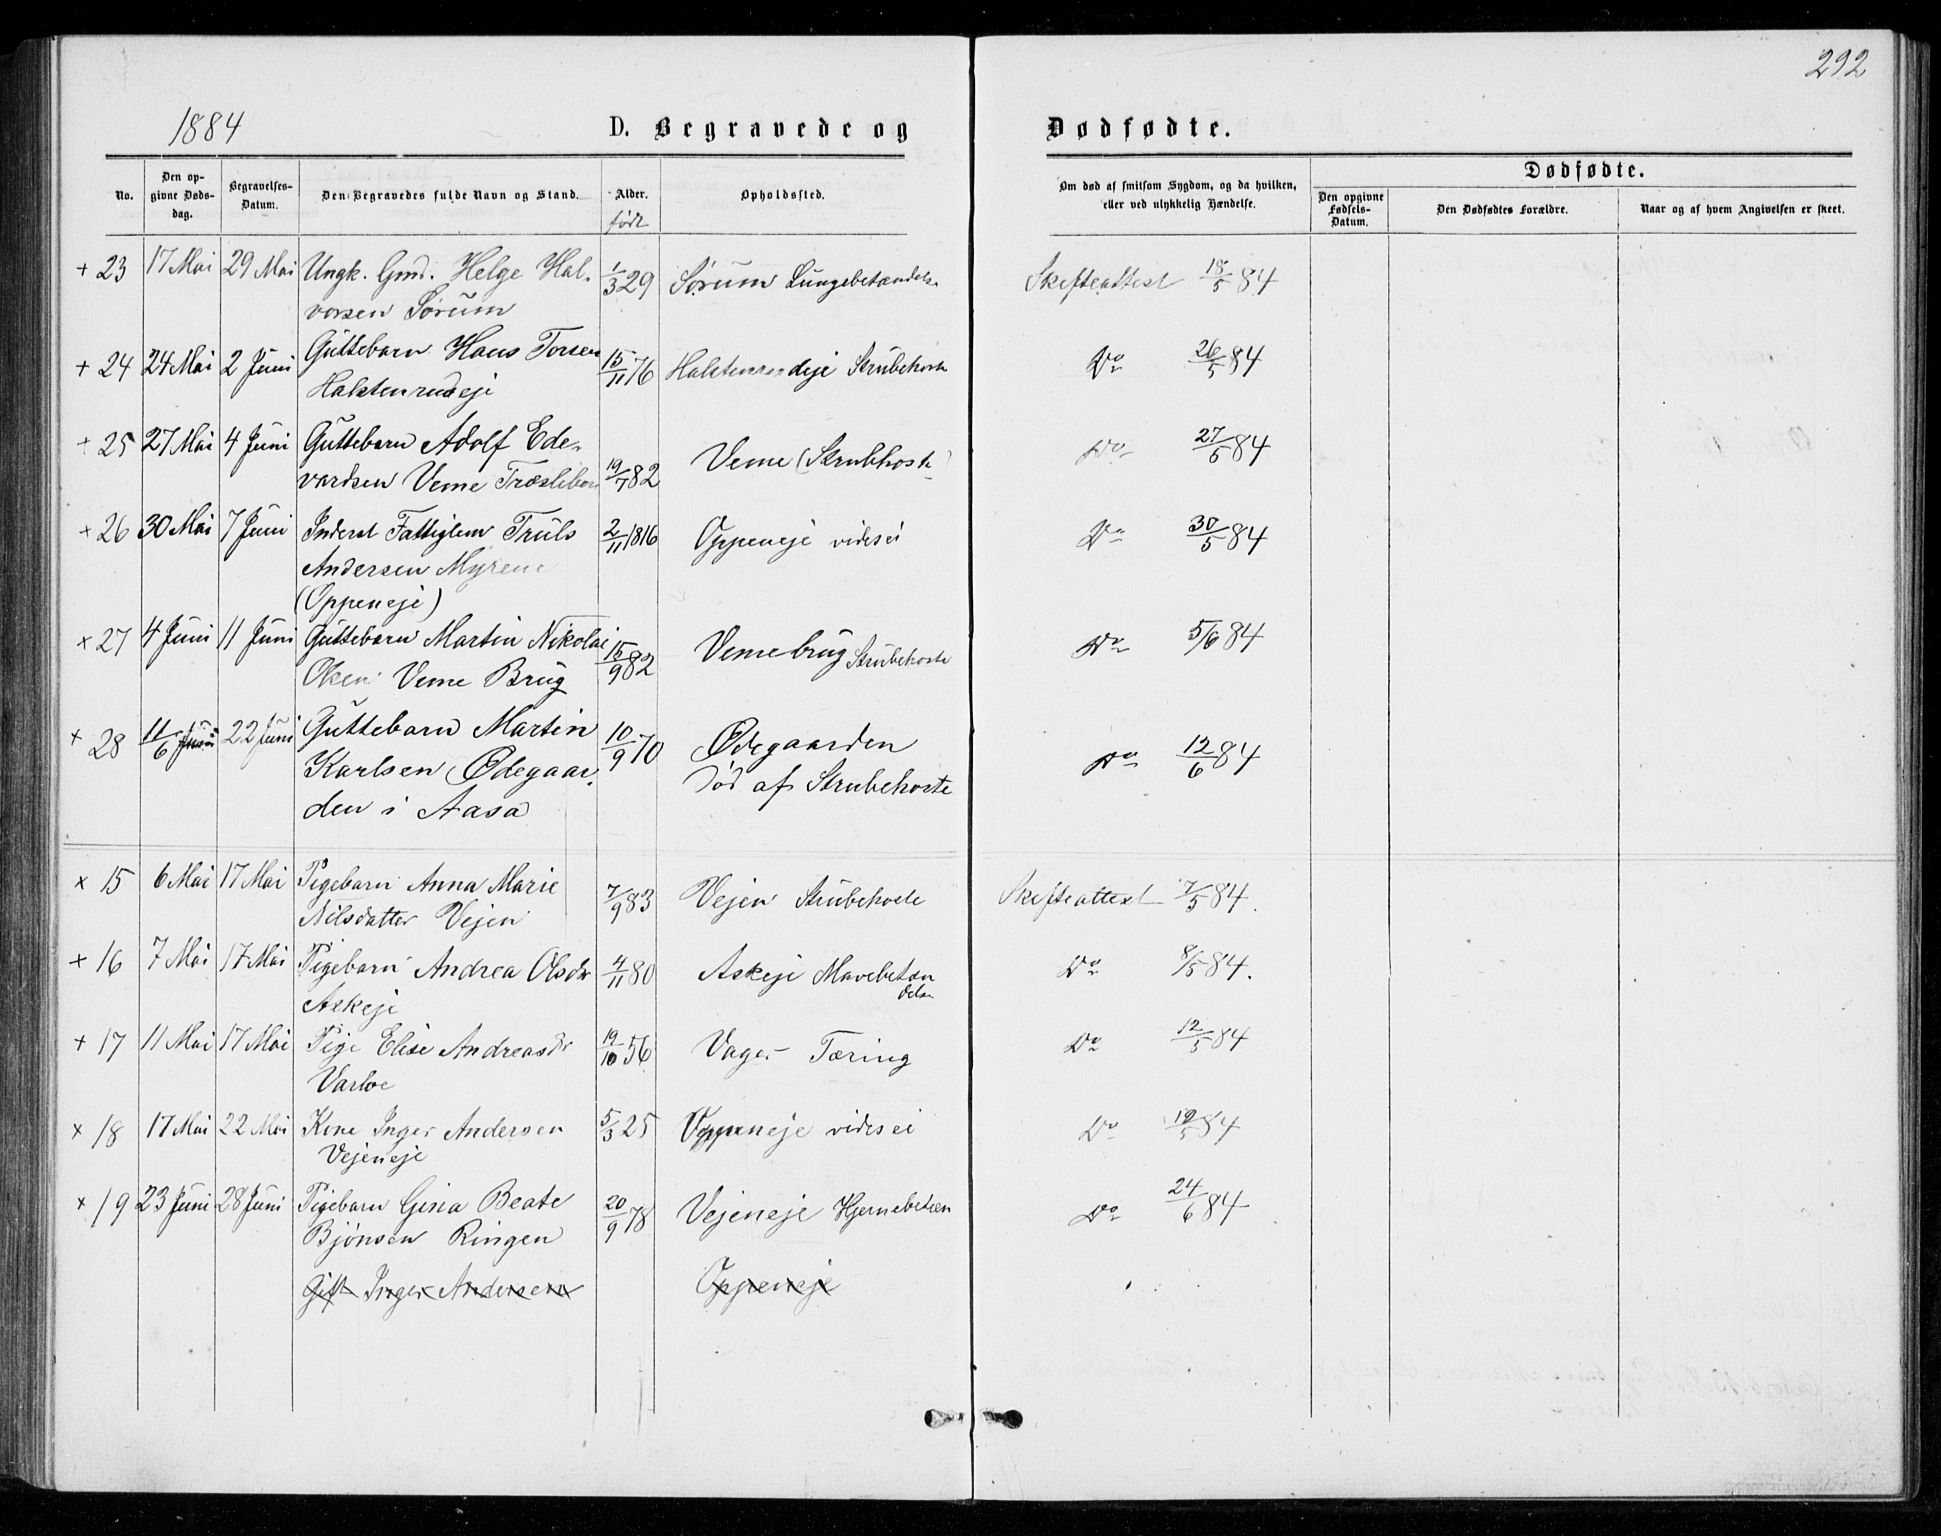 292
1884 D. Begravede og Dødfødte.
No.
Den opgivne Dødsdag.
Begravelses-Datum.
Den Begravedes fulde Navn og Stand.
Alder.
født
Opholdssted.
Om død af smitsom Sygdom, og da hvilken, eller ved ulykkelig Hændelse.
Dødfødte.
Den opgivne Fødsels-Datum.
Den Dødfødtes Forældre.
Naar og af hvem Angivelsen er skeet.
+ 23 17 Mai 29 Mai Ungk. Gmd. Helge Hal- 1/3 29 Sørum Lungebetændelse Skifteattest 18/5 84
vorsen Sørum
+ 24 24 Mai 2 Juni Guttebarn Hans Torsen 15/11 76 Halstenrudeje Strubehoste Do 26/5 84
Halstenrudeje
+ 25 27 Mai 4 Juni Guttebarn Adolf Ede- 19/7 82 Veme (Strubhoste) Do 27/5 84
vardsen Veme
+ 26 30 Mai 7 Juni Inderst Fattiglem Truls 2/11 1816 Oppeneje vides ei Do 30/5 84
Andersen Myrene
(Oppeneje)
× 27 4 Juni 11 Juni Guttebarn Martin Nikolai 15/9 82 Vemebrug Strubehoste Do 5/6 84
Olsen Veme Brug
× 28 11/6 22 Juni Guttebarn Martin 10/9 70 Ødegaarden Do 12/6 84
Karlsen (Ødegaar- død af Strubehoste
den i Aasa
× 15 6 Mai 17 Mai Pigebarn Anna Marie 7/9 83 Vejen Strubehoste Skifteattest 7/5 84.
Nilsdatter Vejen
+ 16 7 Mai 17 Mai Pigebarn Andrea Olsdr 4/11 80 Askeje Mavebetæn Do 8/5 84.
Askeje delse
+ 17 11 Mai 17 Mai Pige Elise Andreasdr 19/10 56 Vager Tæring Do 12/5 84
Varloe
× 18 17 Mai 22 Mai Kone Inger Andersen 5/3 25 Oppeneje vides ei Do 19/5 84
Vejeneje
× 19 23 Juni 28 Juni Pigebarn Gina Beate 20/9 78 Vejeneje Hjernebetæn Do 24/6 84
Bjönsen Ringen
Gift Inger Andersen Oppeneje